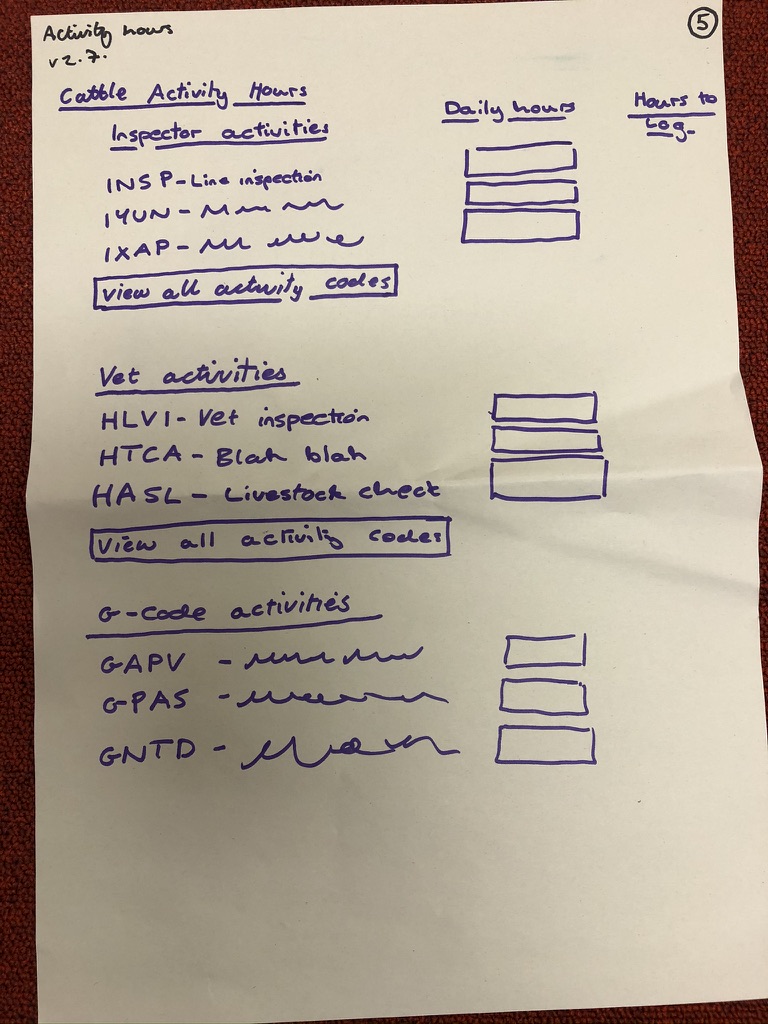 Activity hours
v2.7.
5
Cattle Activity Hours
Daily hours
Hours to
Log.
Inspector activities
INSP-Line inspection
IYUN -
IXAP -
View all activity codes
Vet activities
HLVI- Vet inspection
HTCA - Blah blah
HASL - Livestock check
View all activity codes
G-code activities
GAPV -
GPAS -
GNTD -